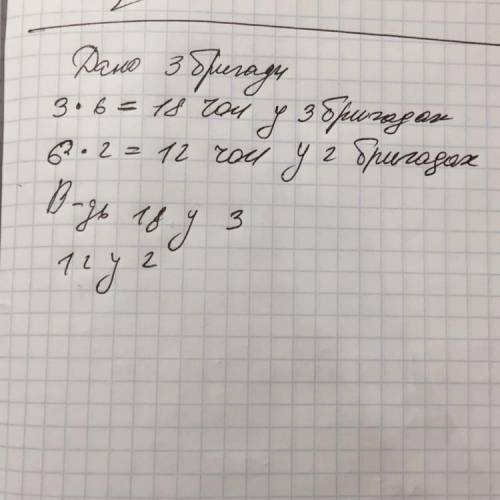 Дано 3 бригади
3 • 6 = 18 чол у 3 бригадах
6 • 2 = 12 чол у 2 бригадах
В-дь 18 у 3
12 у 2